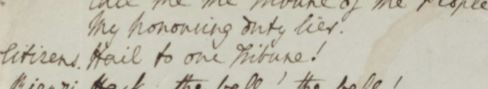 the Tribune of the People
My honouring duty lies.
Citizens. Hail to our Tribune!
Rienzi Hark, the bell! the bell!